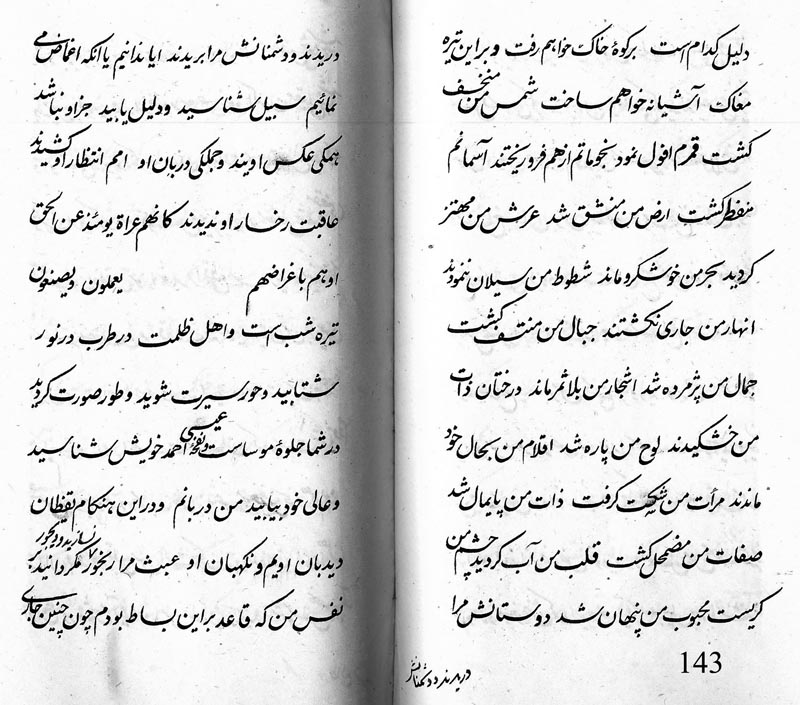 دلیل کدام است برکوهٔ خاک خواهم رفت و بر این تیره
مغاک آشیانه خواهم ساخت شمس من منخسف
گشت قمرم افول نمود نجوماتم از هم فرو ریختند آسمانم
منفطر گشت ارض من منشق شد عرش من مهتز
گردید بحر من خوشکرد ماند شطوط من سیلان ننمودند
انهار من جاری نگشتند جبال من منتسف گشت
جمال من پژمرده شد اشجار من بلا ثمر ماند درختان ذات
من خشکیدند لوح من پاره شد اقلام من بحال خود
ماندند مرآت من شکست گرفت ذات من پایمال شد
صفات من مضمحل گشت قلب من آب گردید چشم من
گریست محبوب من پنهان شد دوستانش مرا
دریدند و دشمنانش
143
دریدند و دشمنانش مرا بریدند ایا بدانیم یا آنکه اغماض می
نمائیم سبیل شناسید و دلیل یابید جز او نباشد
همگی عکس اویند و جملگی دربان او امم انتظار او کشیدند
عاقبت رخسار او ندیدند کانهم عراة یومئذ عن الحق
او هم باغراضهم یعملون و یصنعون
تیره شب است و اهل ظلمت در طرب در نور
شتابید و حور سیرت شوید و طور صورت گردید
در شما جلوهٔ موساست و نفخهٔ عیسی احمد خویش شناسید
و عالی خود بیابید من دربانم و در این هنگام یقظان
دیدبان اویم و نگهبان او عبث مرا رنجور مگردانید
نفس من که قاعد بر این بساط بودم چون چنین جاری